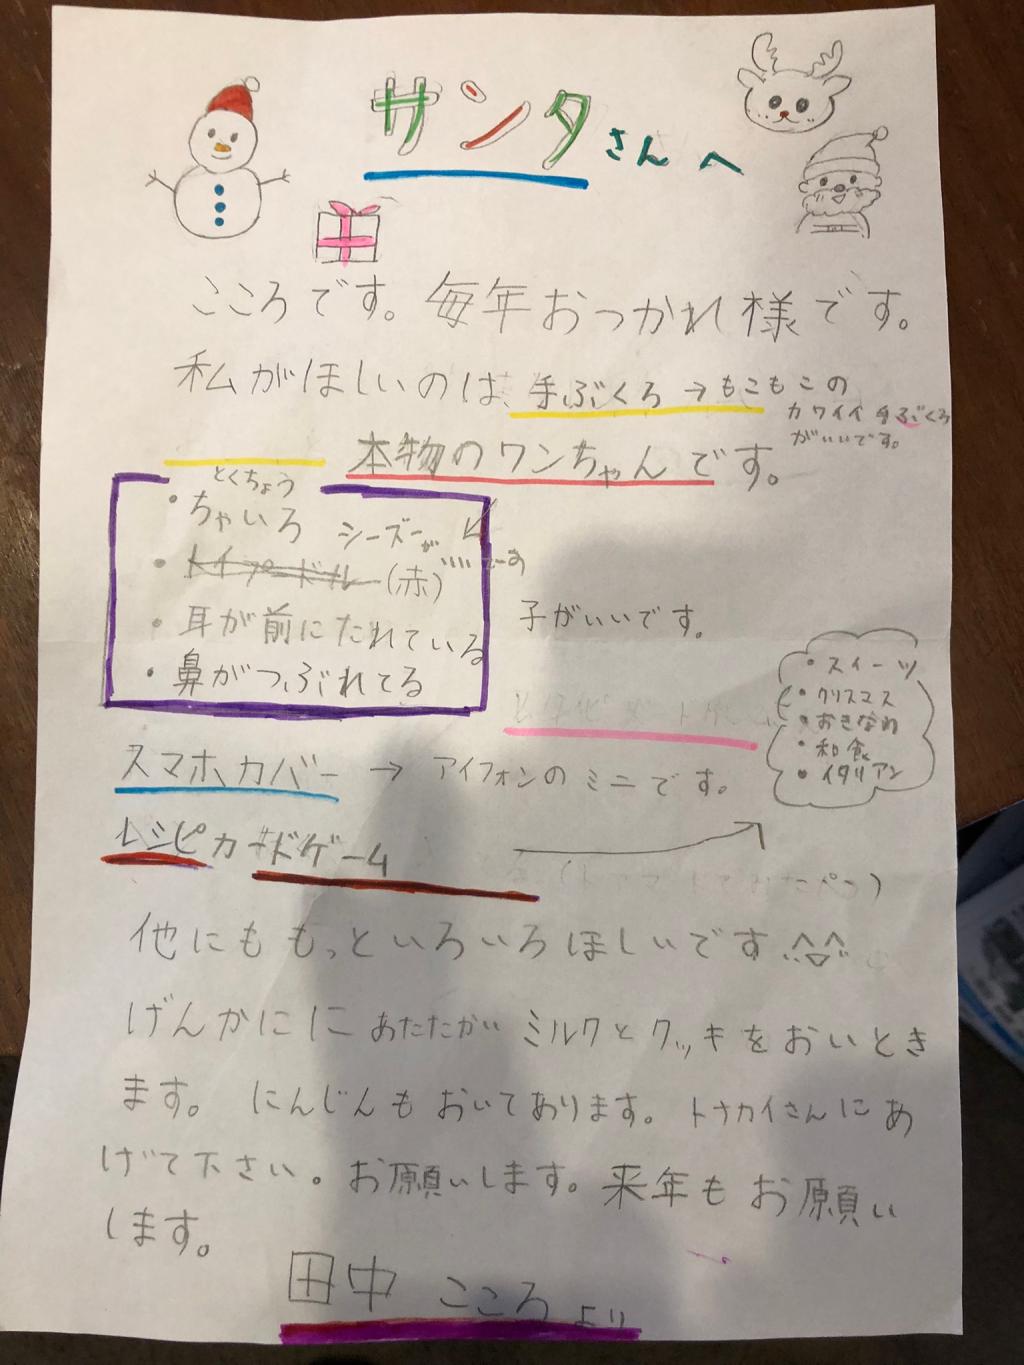 サンタさんへ
こころです。毎年おっかれ様です。
私がほしいのは、手ぶくろ→もこもこの
カワイイ手ぶくろ
がいいです。
本物のワンちゃんです。
とくちょう
・ちゃいろ シーズーが
・トイプードル(赤) いいでーす
・耳が前にたれている
・鼻がつぶれてる
子がいいです。
スマホカバー → アイフォンのミニです。
・スイーツ
・クリスマス
・おきなわ
・和食
・イタリアン
レシピカードゲーム
他にももっといろいろほしいです
げんかにに あたたがい ミルクとクッキをおいとき
ます。 にんじんもおいてあります。トナカイさんにあ
げて下さい。お願いします。来年もお願い
します。
田中 こころより